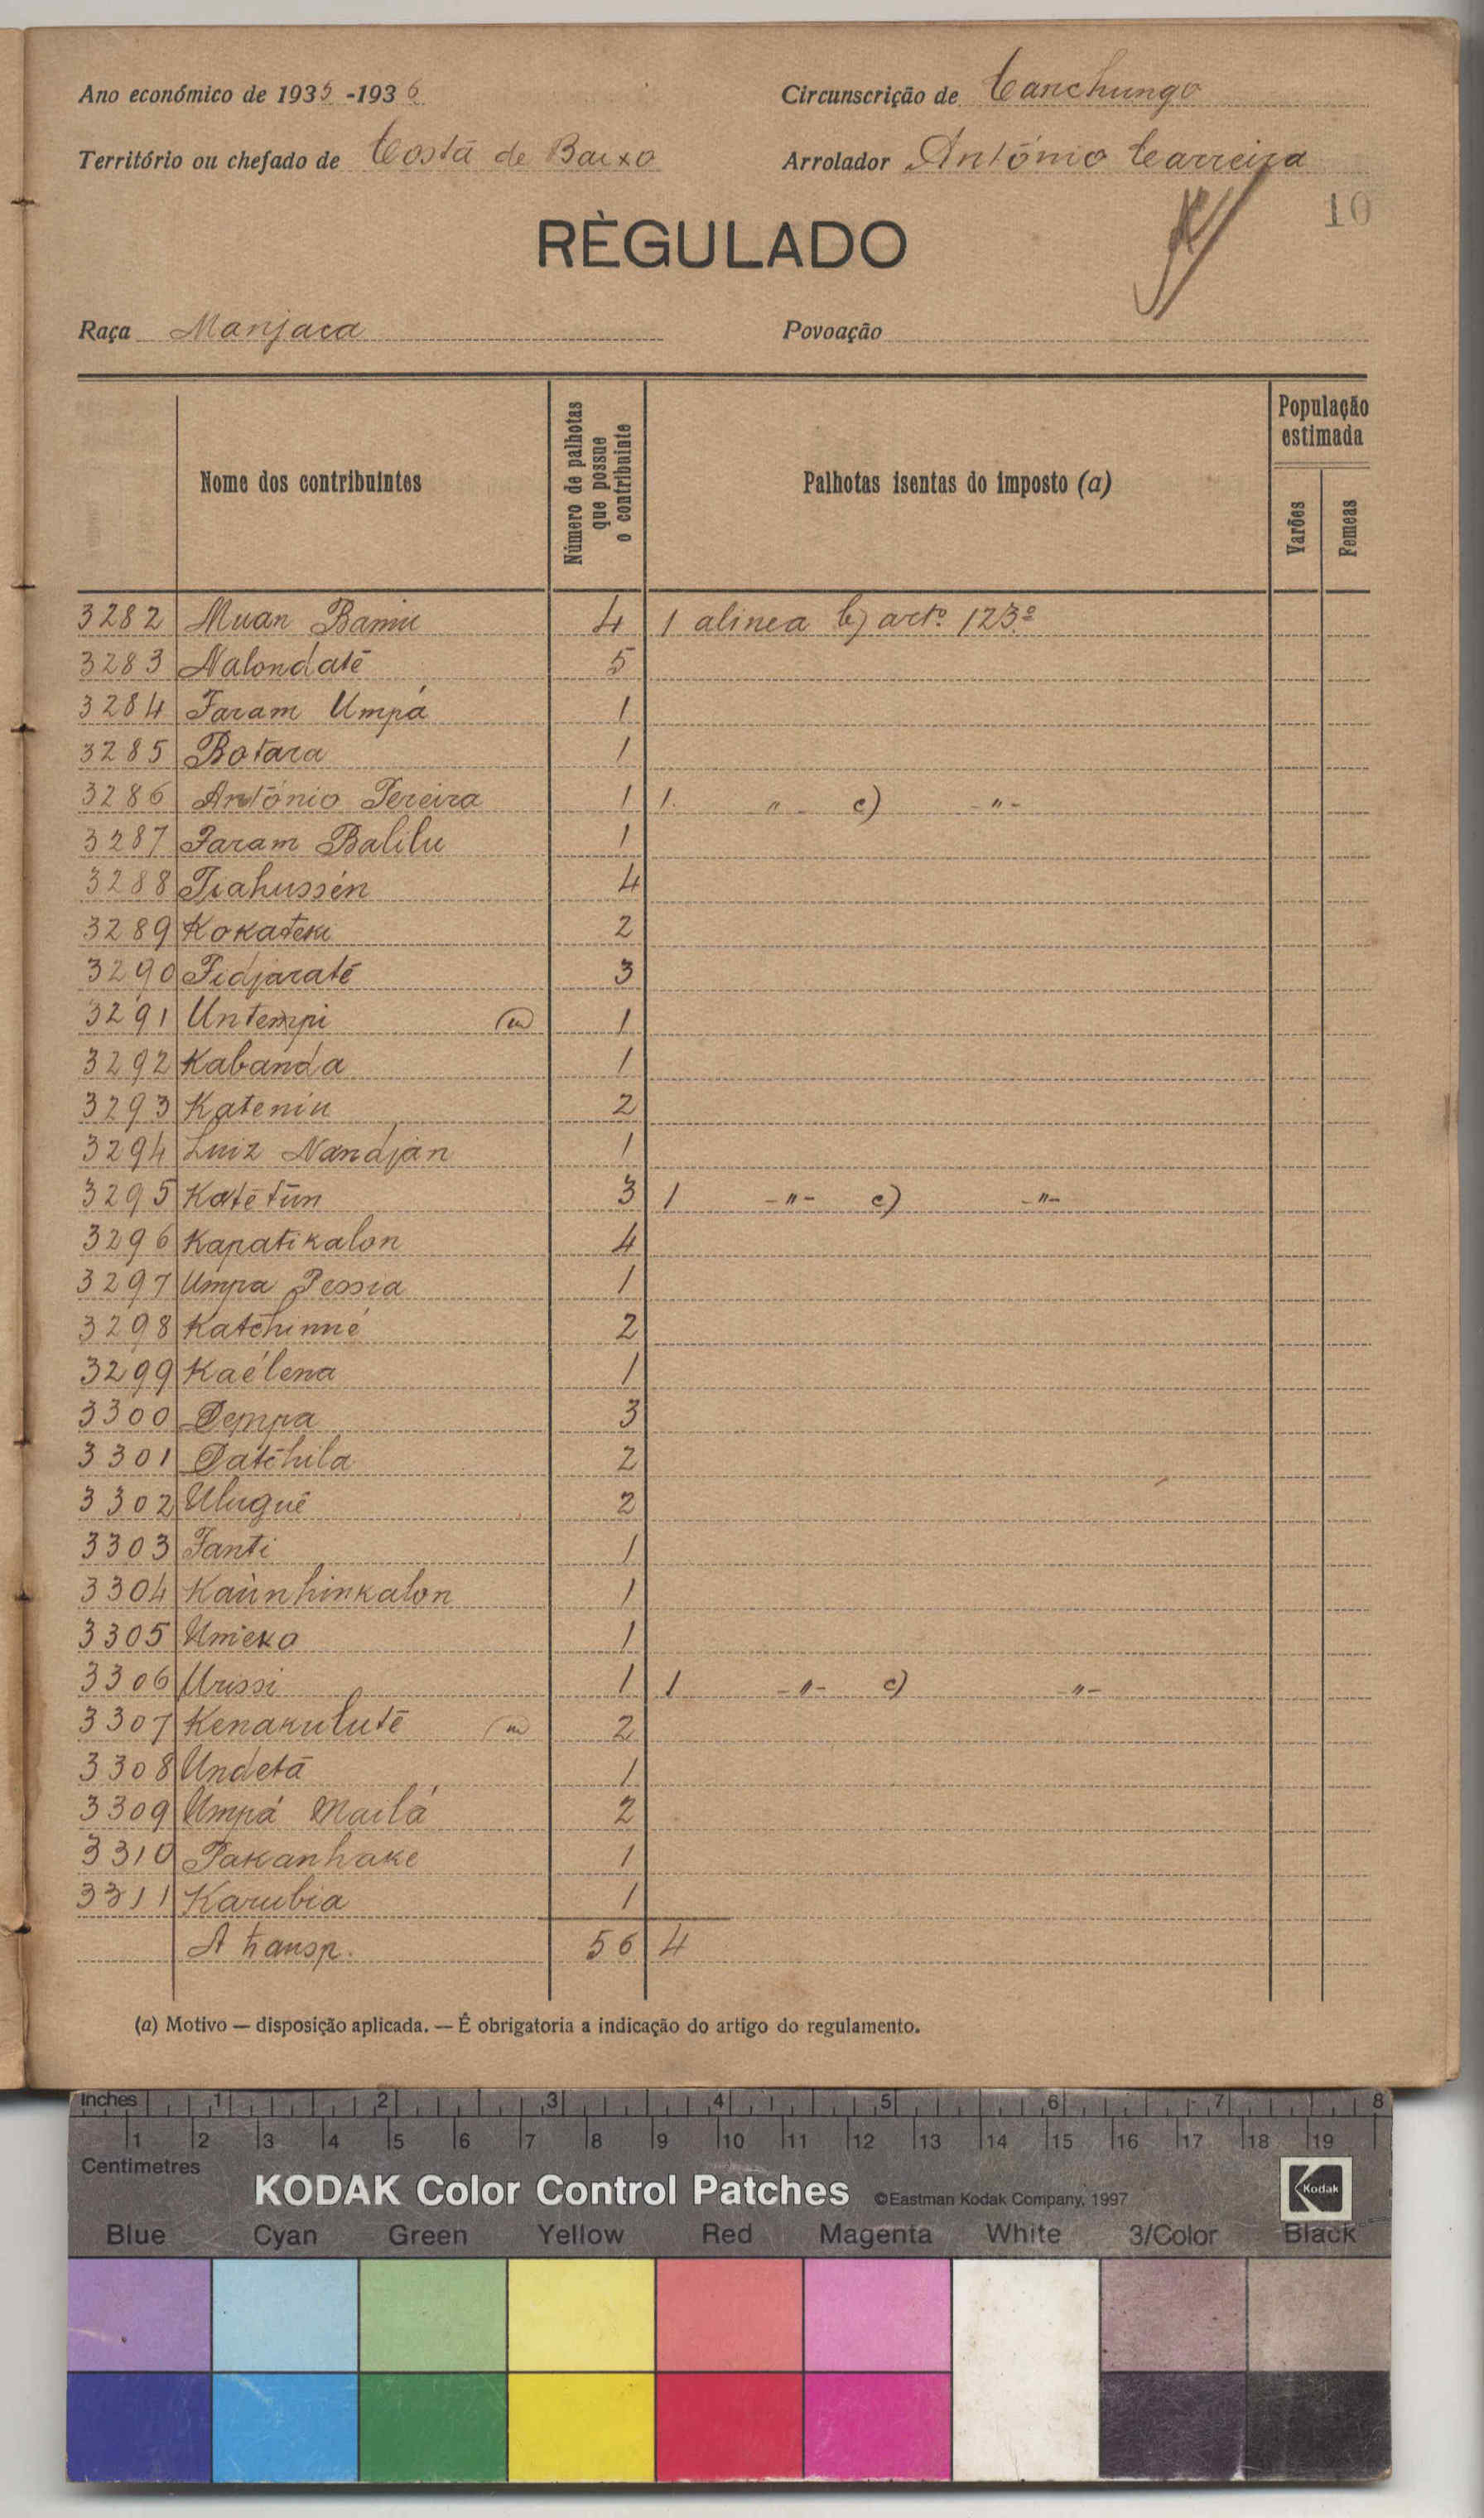 Ano económico de 1935-1936 Circunscrição de Canchungo
Território ou chefado de Costa de Baixo Arrolador António Carreira
10
RÈGULADO
Raça Manjaca Povoação
Nome dos contribuintes
Número de palhotas que possue o contribuinte
Palhotas isentas do imposto (a)
População estimada
Varões
Femeas
3282 Muan Bamu 4 1 alinea b) artº 123º
3283 Nalondatē 5
3284 Faram Umpá 1
3285 Botara 1
3286 António Pereira 1 1. " c) -"-
3287 Param Balilu 1
3288 Tiahussén 4
3289 Kokateki 2
3290 Pidjaratē 3
3291 Untempi (m) 1
3292 Kabanda 1
3293 Kateniu 2
3294 Luiz Nandján 1
3295 Katētūn 3 1 -"- c) -"-
3296 Kapatikalon 4
3297 Umpa Pessia 1
3298 Katchimné 2
3299 Kaélena 1
3300 Dempa 3
3301 Datchila 2
3302 Uluguē 2
3303 Fanti 1
3304 Kaùnhinkalon 1
3305 Umieko 1
3306 Urissi 1 1 -"- c) -"-
3307 Kenakulutē (m) 2
3308 Undetā 1
3309 Umpá Mailá 2
3310 Pakanhake 1
3311 Karubia 1
A transp. 56 4
(a) Motivo — disposição aplicada. — É obrigatoria a indicação do artigo do regulamento.
Inches 1 2 3 4 5 6 7 8
1 2 3 4 5 6 7 8 9 10 11 12 13 14 15 16 17 18 19
Centimetres
KODAK Color Control Patches ©Eastman Kodak Company, 1997 Kodak
Blue Cyan Green Yellow Red Magenta White 3/Color Black